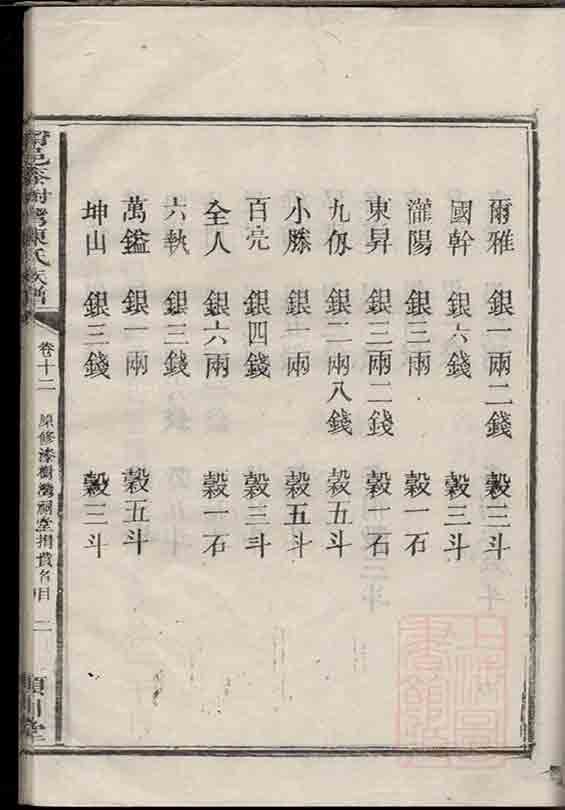 爾雅 銀一兩二錢 穀三斗
國幹 銀六錢 穀三斗
瀧陽 銀三兩 穀一石
東昇 銀三兩二錢 穀一石
九仭 銀二兩八錢 穀五斗
小滕 銀一兩 穀五斗
百亮 銀四錢 穀三斗
全人 銀六兩 穀一石
六執 銀三錢
萬鎰 銀一兩 穀五斗
坤山 銀三錢 穀三斗
漆樹灣陳氏族譜
卷十二
原修漆樹灣祠堂捐費名目
二
潁川堂
上海圖書館藏